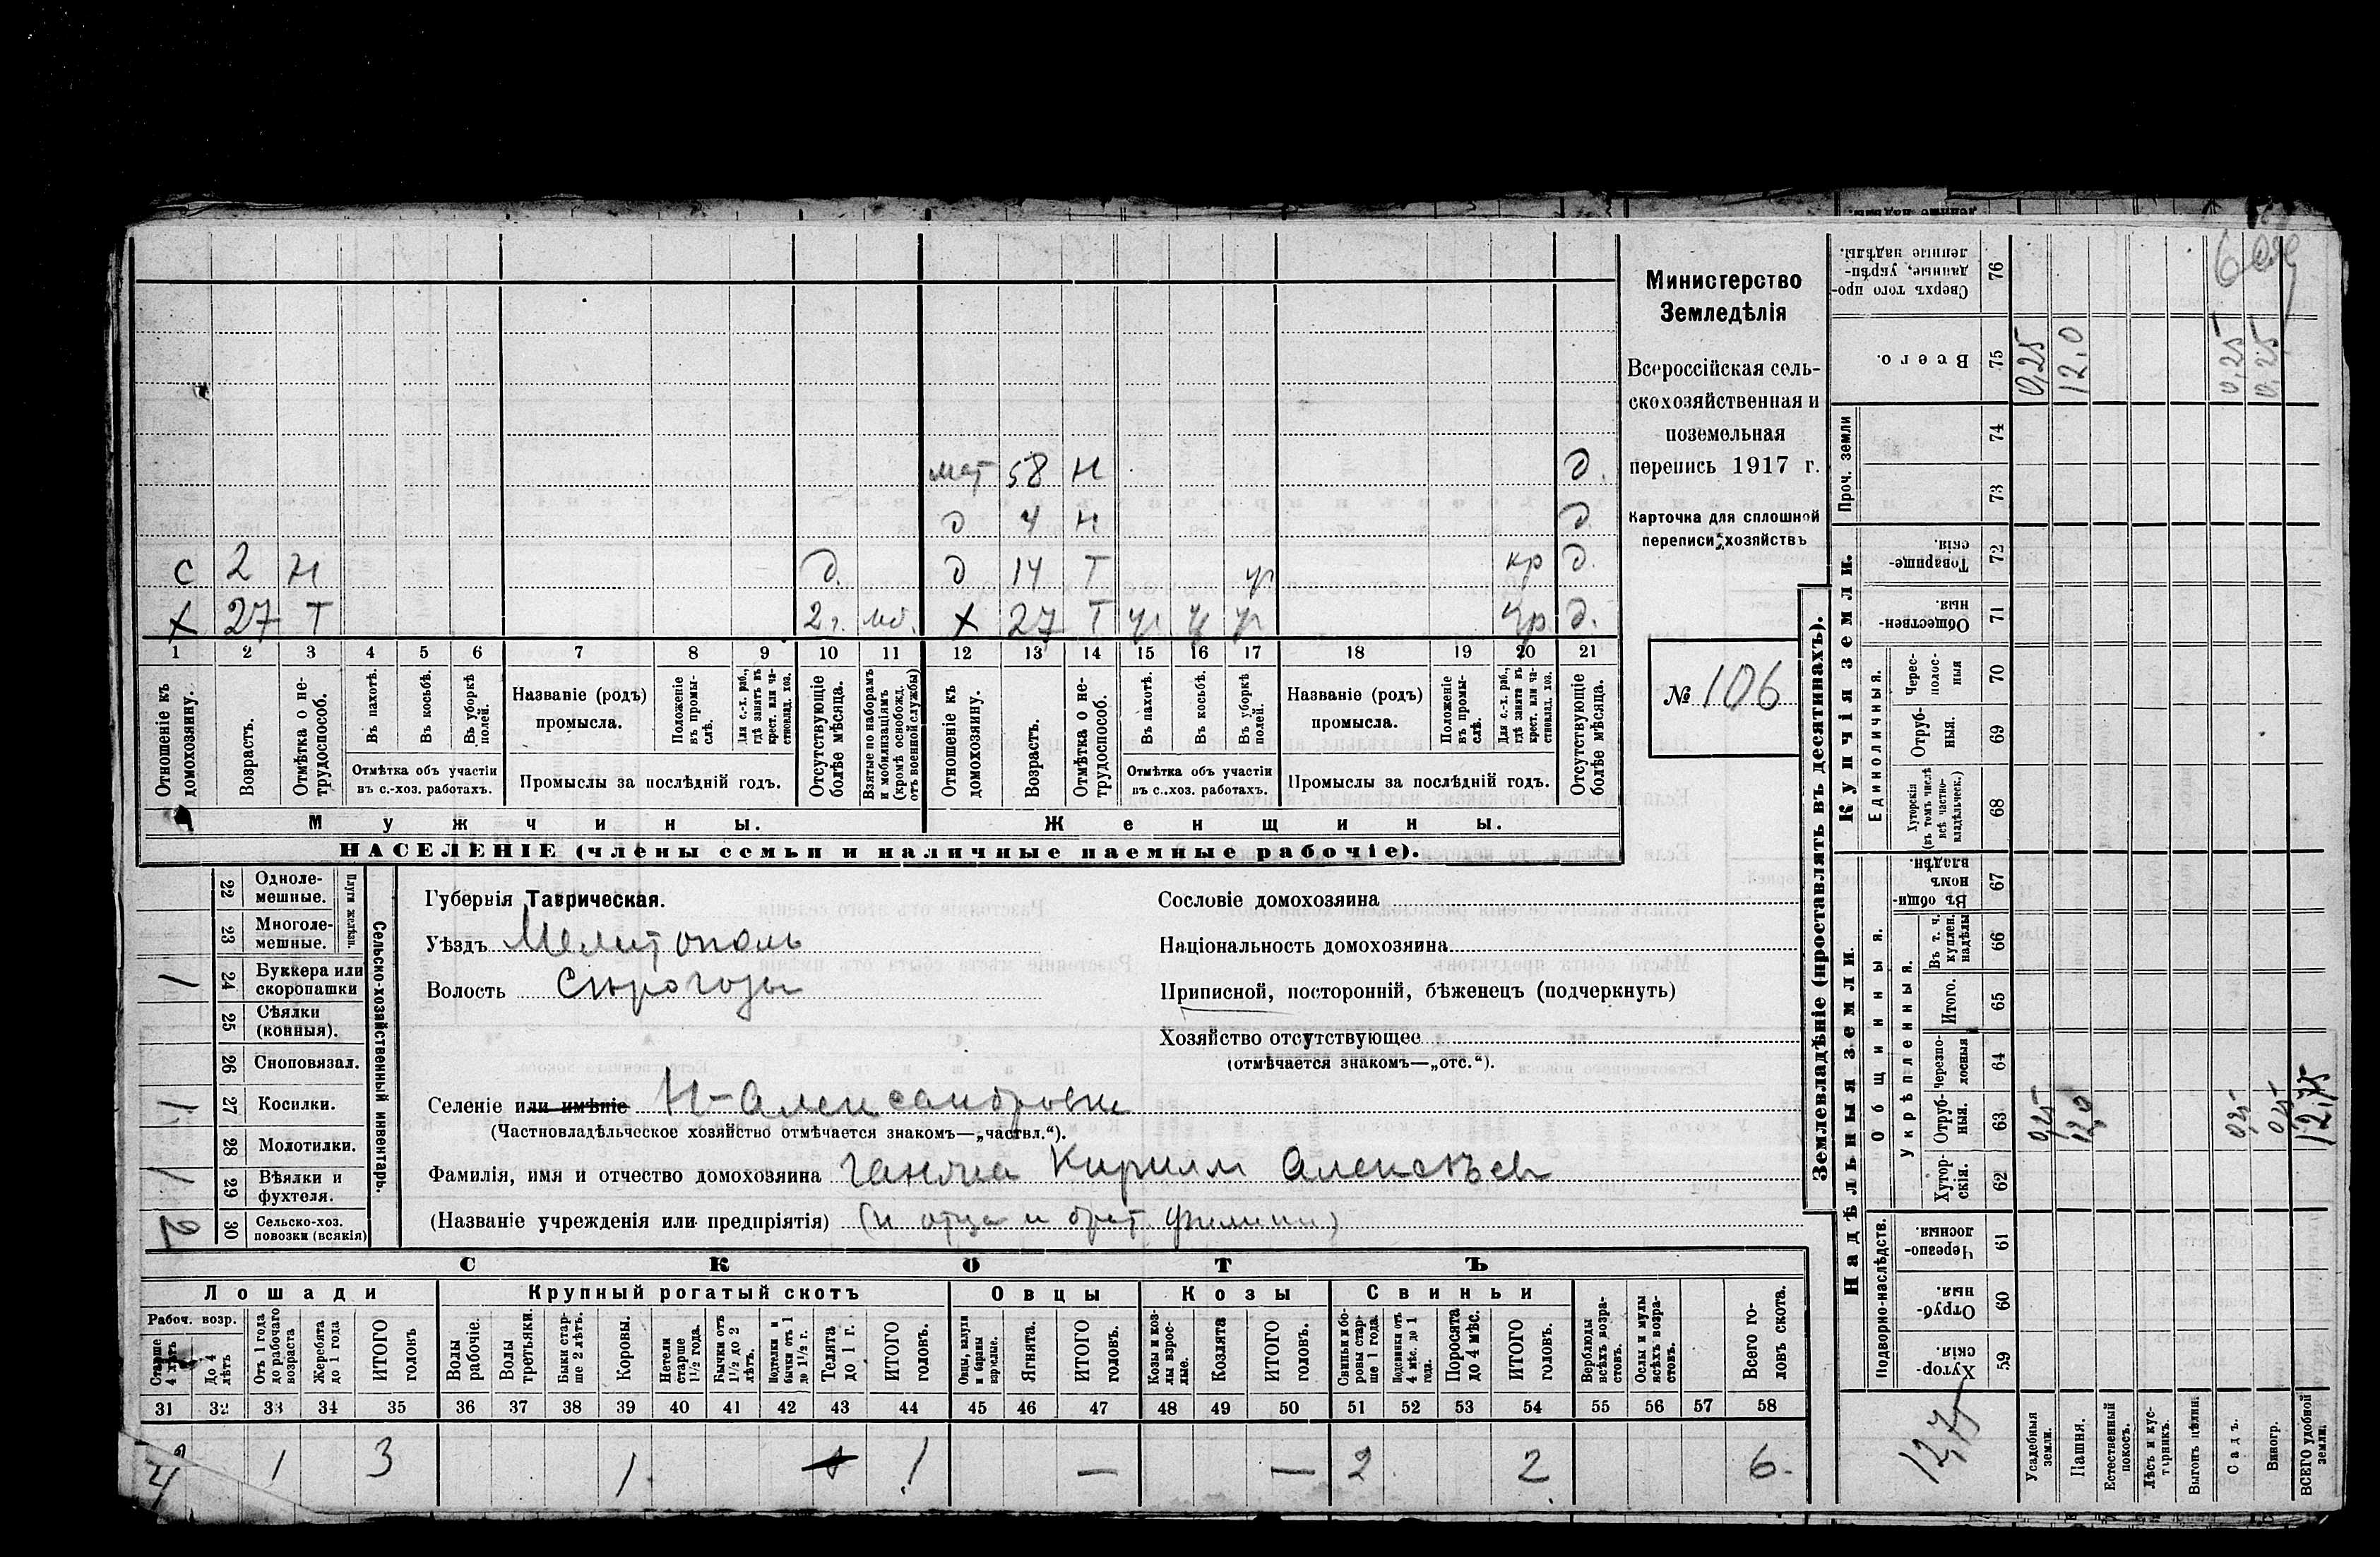 мат 58 н д.
д 4 н д
с 2 н д. д 14 Т ур кр д.
х 27 Т 2 г. мб. х 27 Т ур ур ур кр д.
1 2 3 4 5 6 7 8 9 10 11 12 13 14 15 16 17 18 19 20 21
Отношеніе къ домохозяину.
Возрастъ.
Отмѣтка о нетрудоспособ.
Въ пахотѣ.
Въ косьбѣ.
Въ уборкѣ полей.
Отмѣтка объ участіи въ с.-хоз. работахъ.
Названіе (родъ) промысла.
Положеніе въ промыслѣ.
Для с.-х. раб., гдѣ занятъ въ крест. или частновлад. хоз.
Промыслы за послѣдній годъ.
Отсутствующіе болѣе мѣсяца.
Взятые по наборамъ и мобилизаціямъ (кромѣ освобожд. отъ военной службы)
Отношеніе къ домохозяину.
Возрастъ.
Отмѣтка о нетрудоспособ.
Въ пахотѣ.
Въ косьбѣ.
Въ уборкѣ полей.
Отмѣтка объ участіи въ с..хоз. работахъ.
Названіе (родъ) промысла.
Положеніе въ промыслѣ.
Для с.-х. раб., гдѣ занята въ крест. или частновлад. хоз.
Промыслы за послѣдній годъ.
Отсутствующіе болѣе мѣсяца.
Мужчины.
Женщины.
НАСЕЛЕНІЕ (члены семьи и наличные наемные рабочіе).
Министерство
Земледѣлія
Всероссійская сель-
скохозяйственная и
поземельная
перепись 1917 г.
Карточка для сплошной
переписи хозяйствъ
№ 106
22 Однолемешные.
23 Многолемешные.
Плуги желѣзн.
1 24 Буккера или скоропашки
25 Сѣялки (конныя).
26 Сноповязал.
1 27 Косилки.
28 Молотилки.
1 29 Вѣялки и фухтеля.
2 30 Сельско-хоз. повозки (всякія)
Сельско-хозяйственный инвентарь.
Губернія Таврическая.
Уѣздъ Мелитополь
Волость Сѣрогозы
Сословіе домохозяина
Національность домохозяина
Приписной, посторонній, бѣженецъ (подчеркнуть)
Хозяйство отсутствующее
(отмѣчается знакомъ—„отс.“).
Селеніе или имѣніе Н-Александровка
(Частновладѣльческое хозяйство отмѣчается знакомъ—„частвл.“).
Фамилія, имя и отчество домохозяина Ганжа Кирилл Алексѣев
(Названіе учрежденія или предпріятія) (и отца и брат. Филипп)
СКОТЪ
Лошади
Крупный рогатый скотъ
Овцы
Козы
Свиньи
Рабоч. возр.
Старше 4 лѣтъ
До 4 лѣтъ
Отъ 1 года до рабочаго возраста
Жеребята до 1 года
ИТОГО головъ
Волы рабочіе.
Волы третьяки.
Быки старше 2 лѣтъ.
Коровы.
Нетели старше 1½ года.
Бычки отъ 1½ до 2 лѣтъ.
Подтелки и бычки отъ 1 до 1½ г.
Телята до 1 г.
ИТОГО головъ.
Овцы, валухи и бараны взрослые.
Ягнята.
ИТОГО головъ.
Козы и козлы взрослые.
Козлята
ИТОГО головъ.
Свиньи и боровы старше 1 года.
Подсвинки отъ 4 мѣс. до 1 года.
Поросята до 4 мѣс.
ИТОГО головъ.
Верблюды всѣхъ возрастовъ.
Ослы и мулы всѣхъ возрастовъ.
Всего головъ скота.
31 32 33 34 35 36 37 38 39 40 41 42 43 44 45 46 47 48 49 50 51 52 53 54 55 56 57 58
1 3 1 1 — — 2 2 6.
Землевладѣніе (проставлять въ десятинахъ).
Купчія земли.
Надѣльныя земли.
Проч. земли
Единоличныя.
Общинныя.
Укрѣпленныя.
Подворно-наслѣдств.
Сверхъ того проданные, укрѣпленные надѣлы. 76
Всего. 75 0,25 12,0 0,25 0,25
74
73
Товарищескія. 72
Общественныя. 71
Чересполосныя 70
Отрубныя. 69
Хуторскія (въ томъ числѣ всѣ частновладѣльческ.) 68
Въ общинномъ владѣн. 67
Въ т. ч. куплен. надѣлы 66
Итого. 65
Черезполосныя 64
Отрубныя. 63 0,25 12,0 0,25 0,25 12,75
Хуторскія. 62
Черезполосныя 61
Отрубныя. 60
Хуторскія. 59
12,75
Усадебныя земли.
Пашня.
Естественный покосъ.
Лѣсъ и кустарникъ.
Выгонъ цѣлин.
Садъ.
Виногр.
ВСЕГО удобной земли.